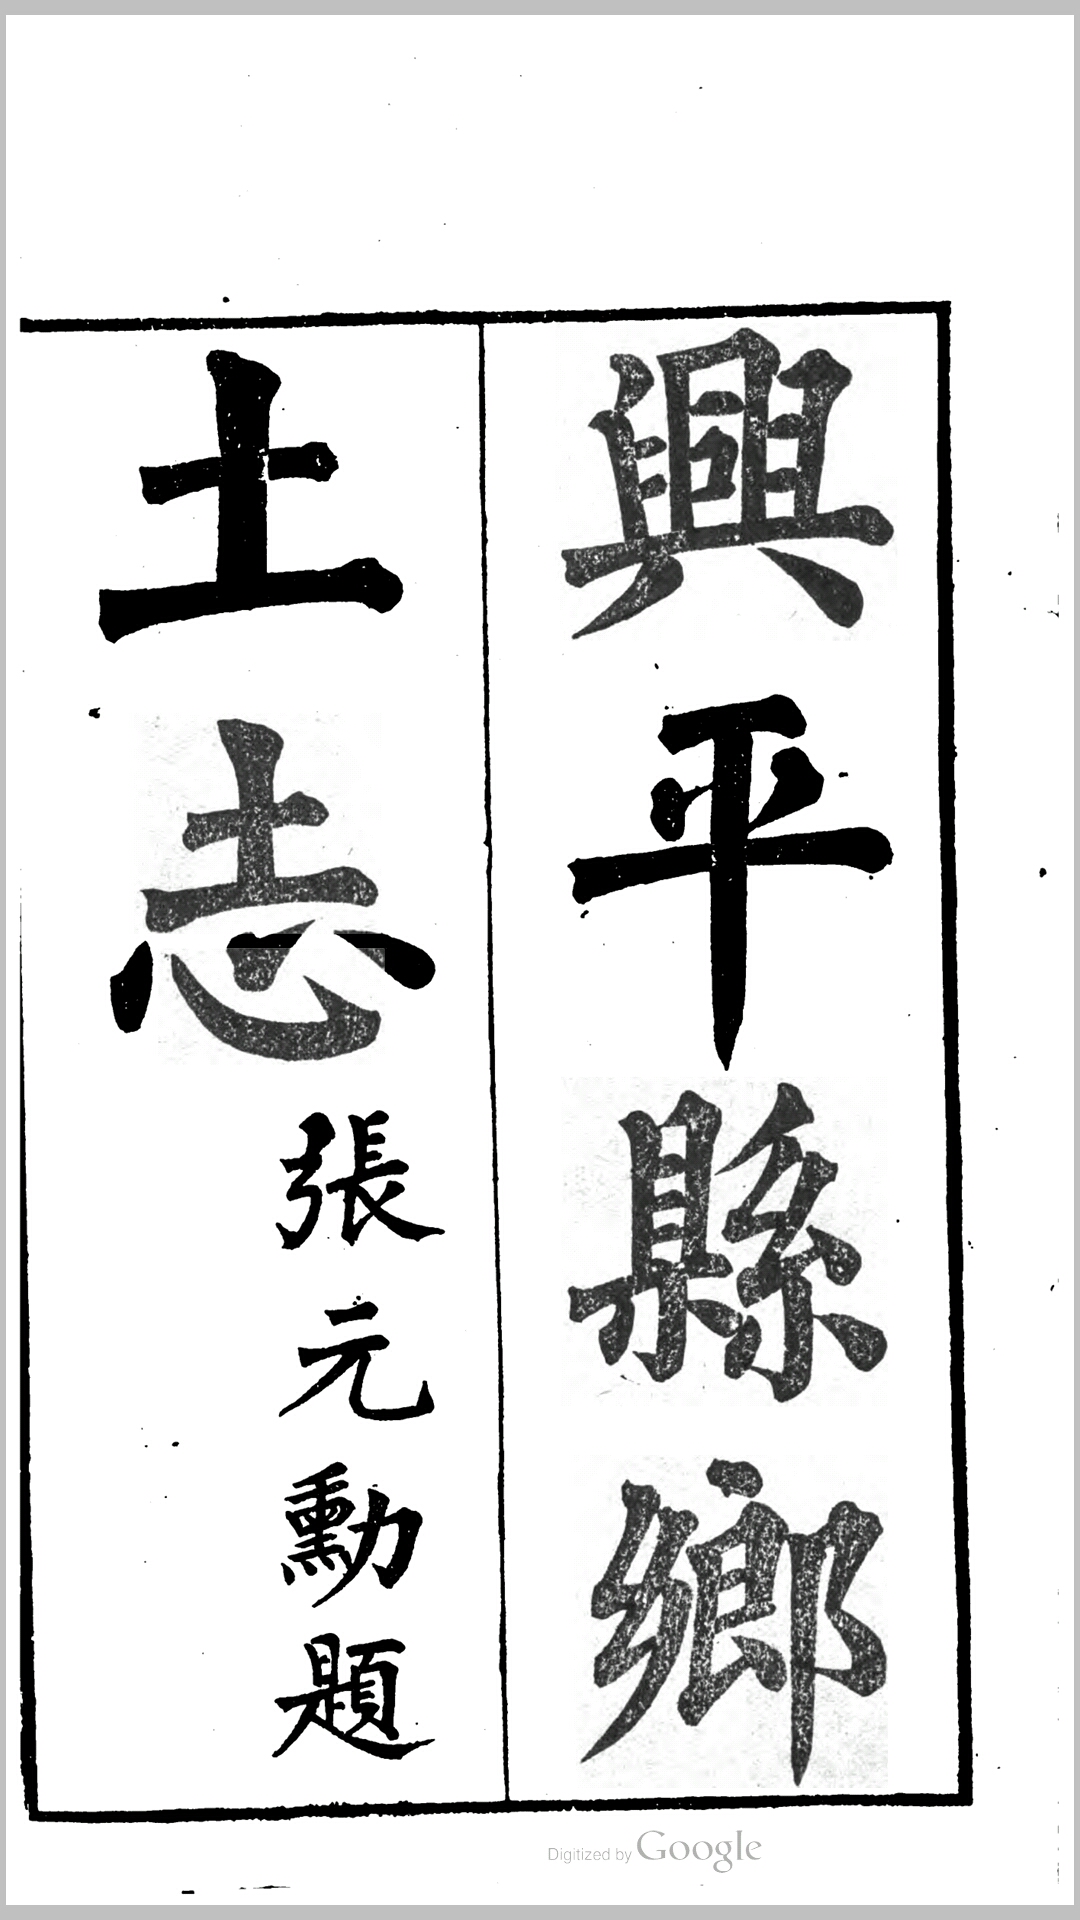 興平縣鄉
土志
張元勳題
Digitized by Google